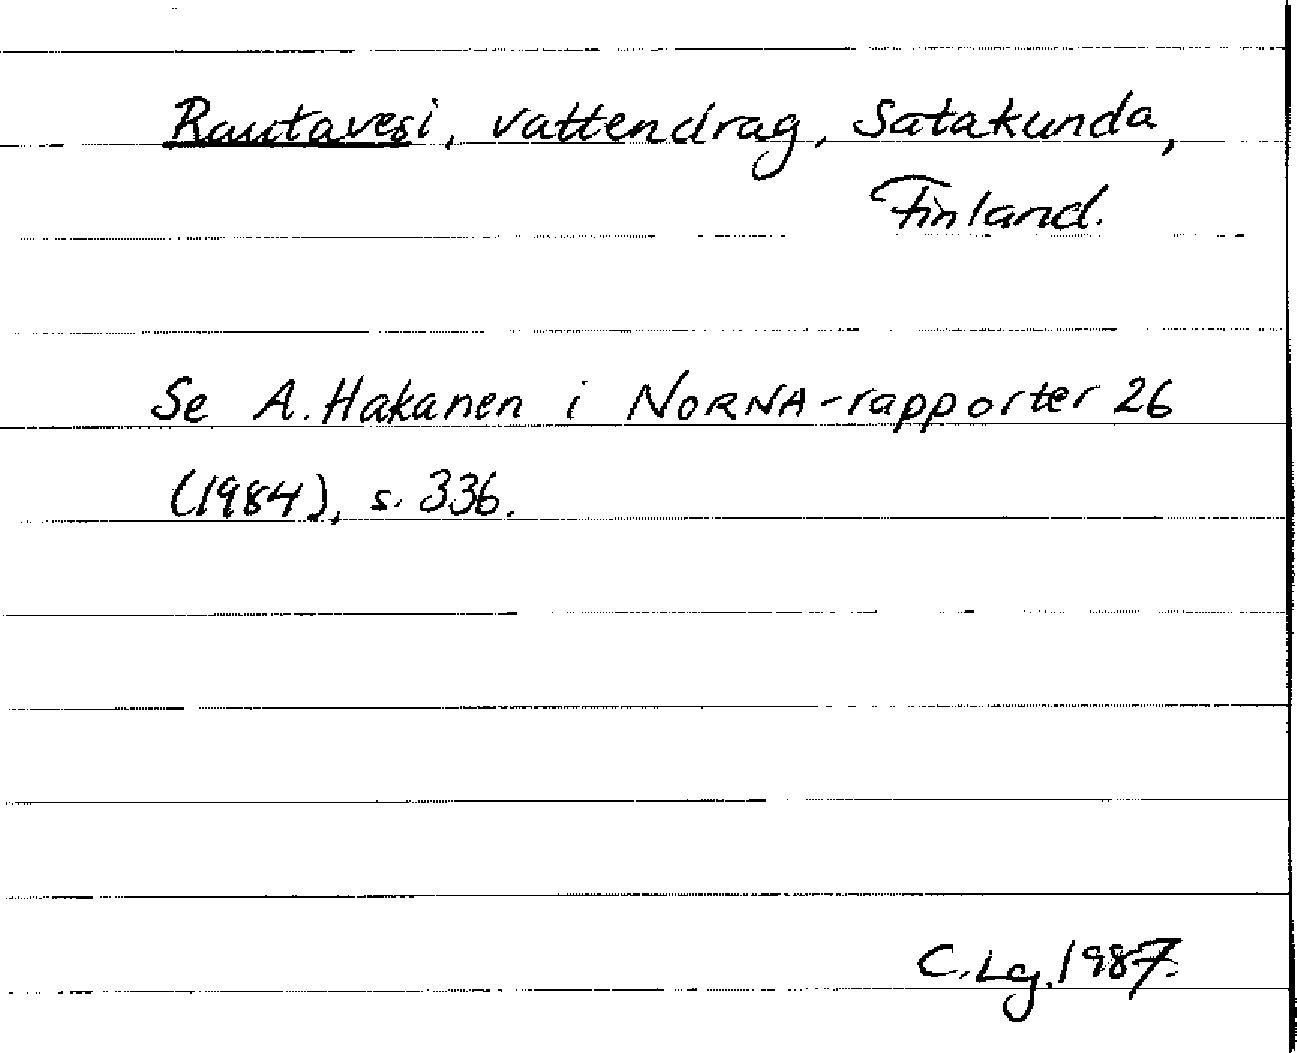 Rautavesi, vattendrag, Satakunda,
Finland.
Se A. Hakanen i NORNA-rapporter 26
(1984), s. 336.
C. Lg. 1987.